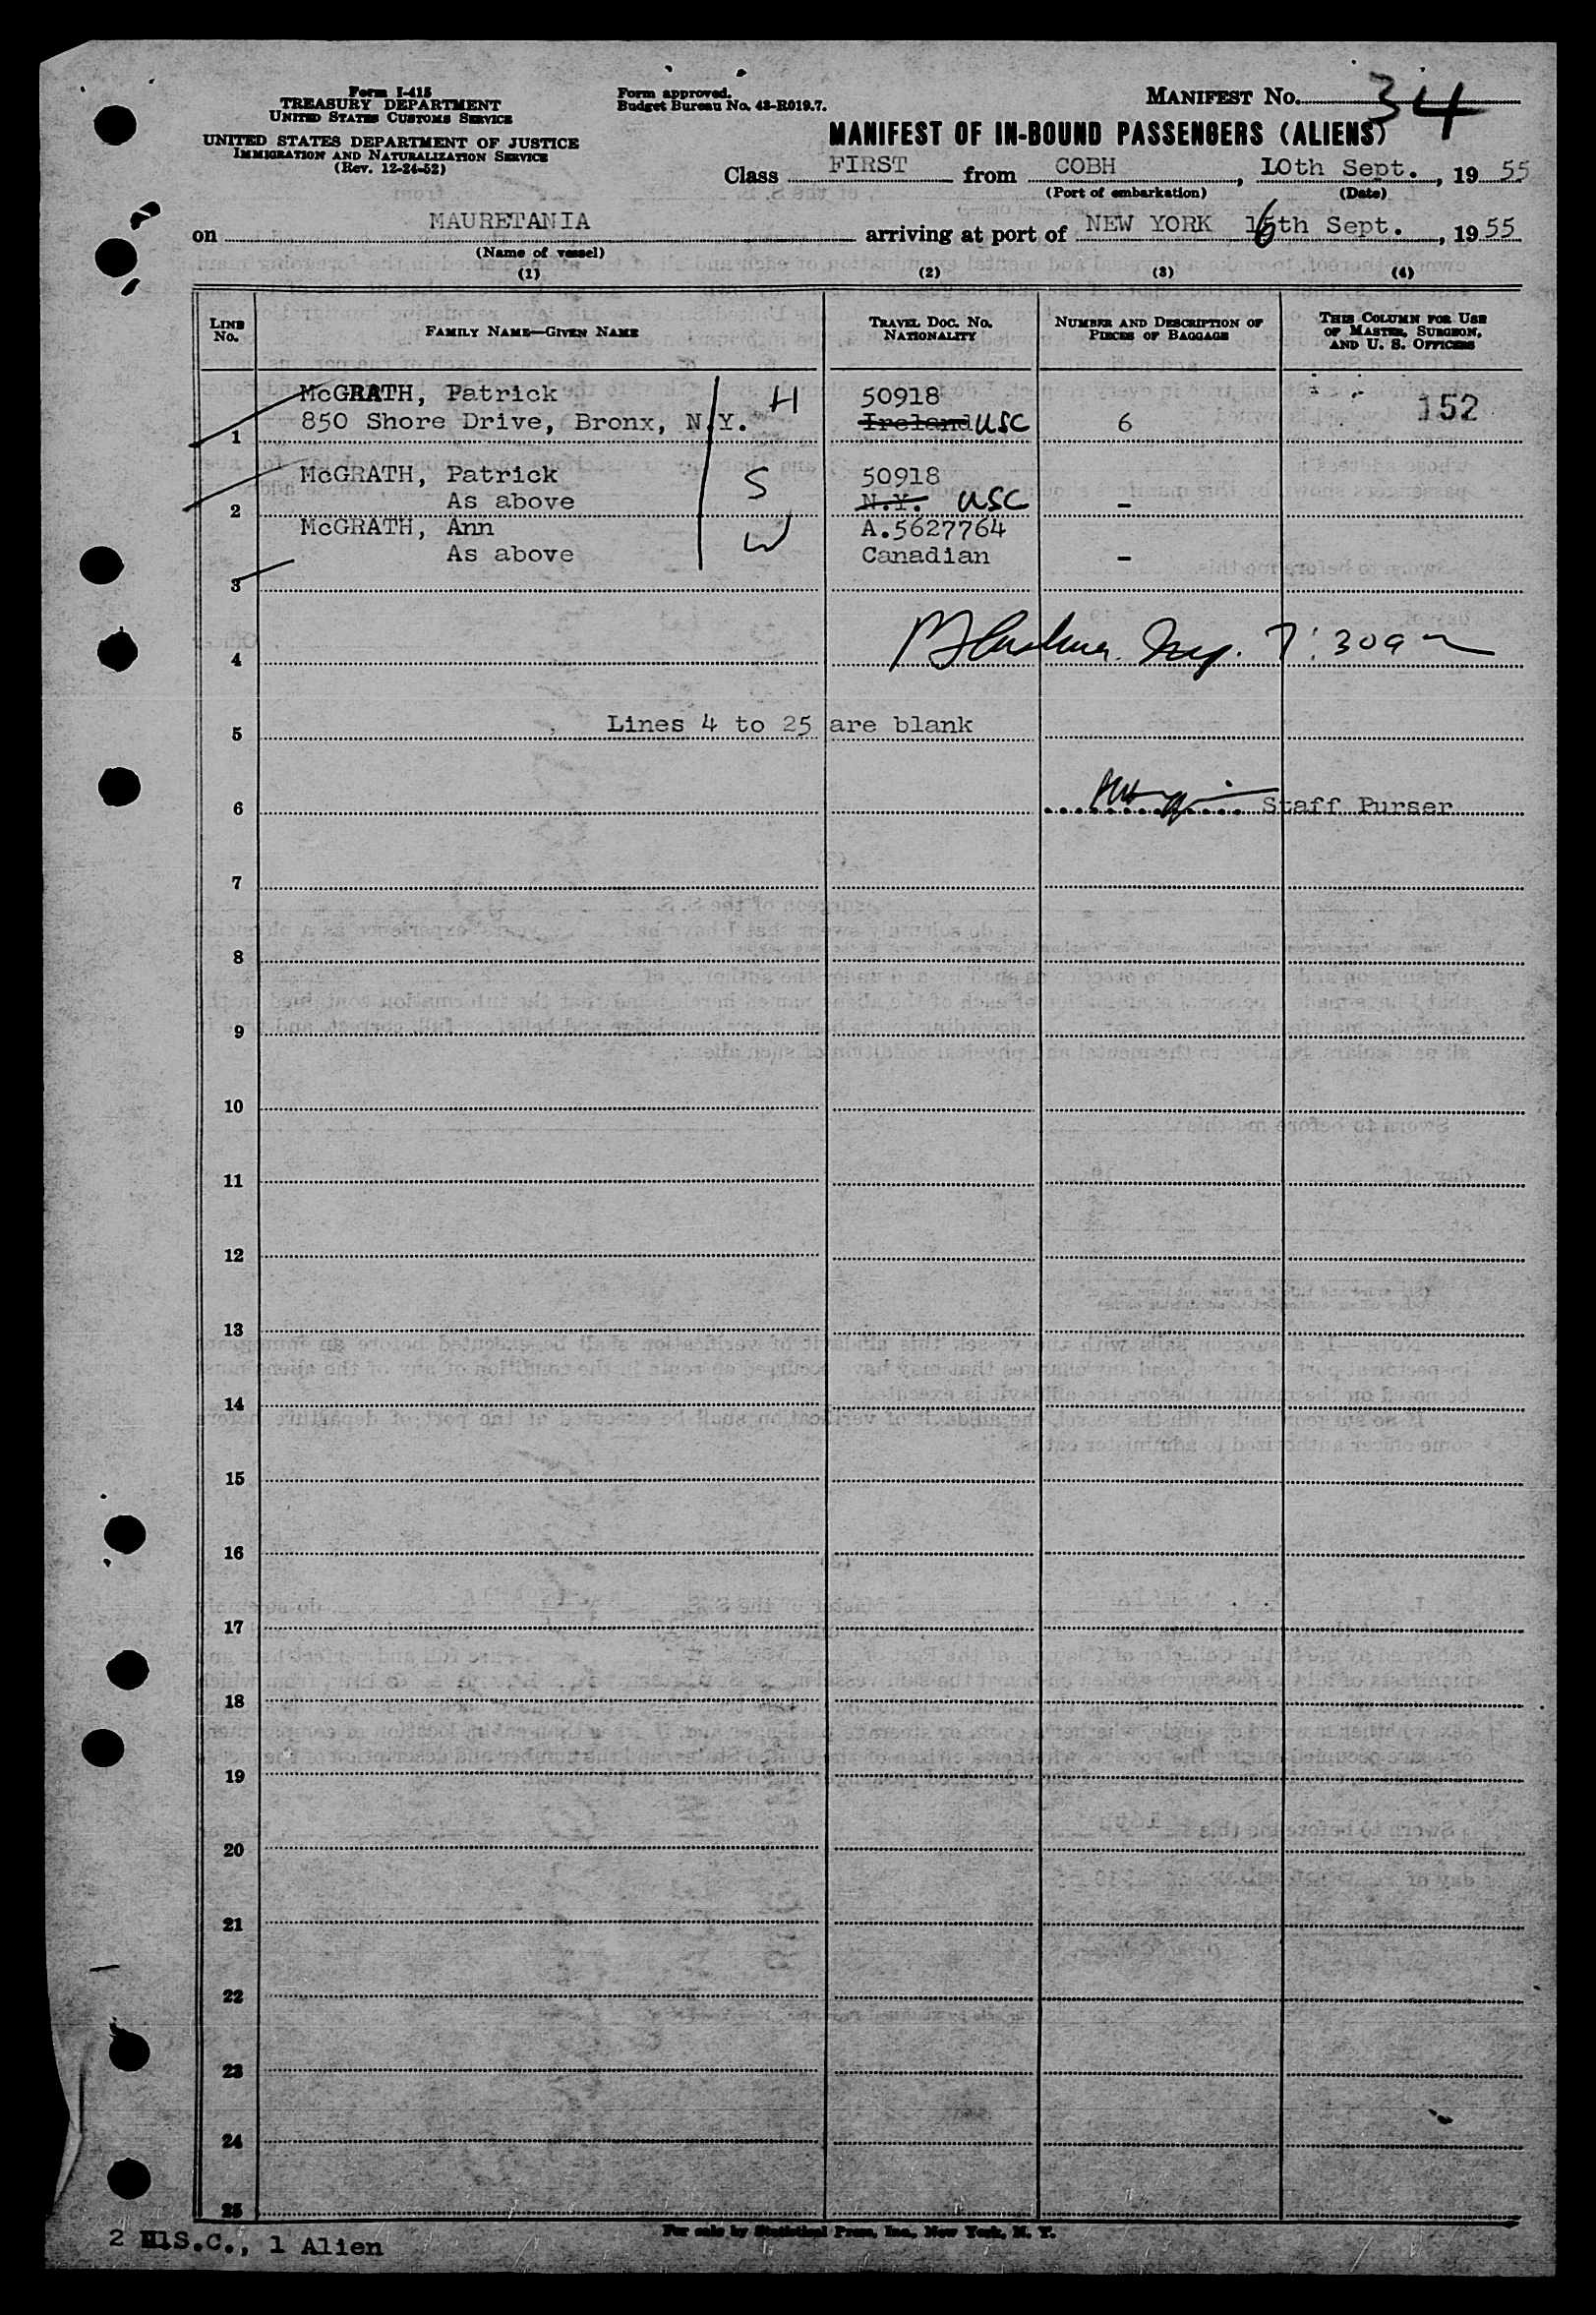 Form I-415
TREASURY DEPARTMENT
UNITED STATES CUSTOMS SERVICE
UNITED STATES DEPARTMENT OF JUSTICE
IMMIGRATION AND NATURALIZATION SERVICE
(Rev. 12-24-52)
Form approved.
Budget Bureau No. 43-R019.7.
MANIFEST NO. 34
MANIFEST OF IN-BOUND PASSENGERS (ALIENS)
Class FIRST from COBH, 10th Sept., 19 55
(Port of embarkation) (Date)
on MAURETANIA arriving at port of NEW YORK 16th Sept., 19 55
(Name of vessel)
(1) (2) (3) (4)
LINE NO.
FAMILY NAME—GIVEN NAME
TRAVEL DOC. NO. NATIONALITY
NUMBER AND DESCRIPTION OF PIECES OF BAGGAGE
THIS COLUMN FOR USE OF MASTER, SURGEON, AND U. S. OFFICERS
McGRATH, Patrick H 50918 152
1 850 Shore Drive, Bronx, N.Y. Ireland USC 6
McGRATH, Patrick S 50918
2 As above N.Y. USC -
McGRATH, Ann W A.5627764
As above Canadian -
3
4 7:30am
5 Lines 4 to 25 are blank
6 Staff Purser
7
8
9
10
11
12
13
14
15
16
17
18
19
20
21
22
23
24
25
For sale by Statistical Press, Inc., New York, N. Y.
2 U.S.C., 1 Alien